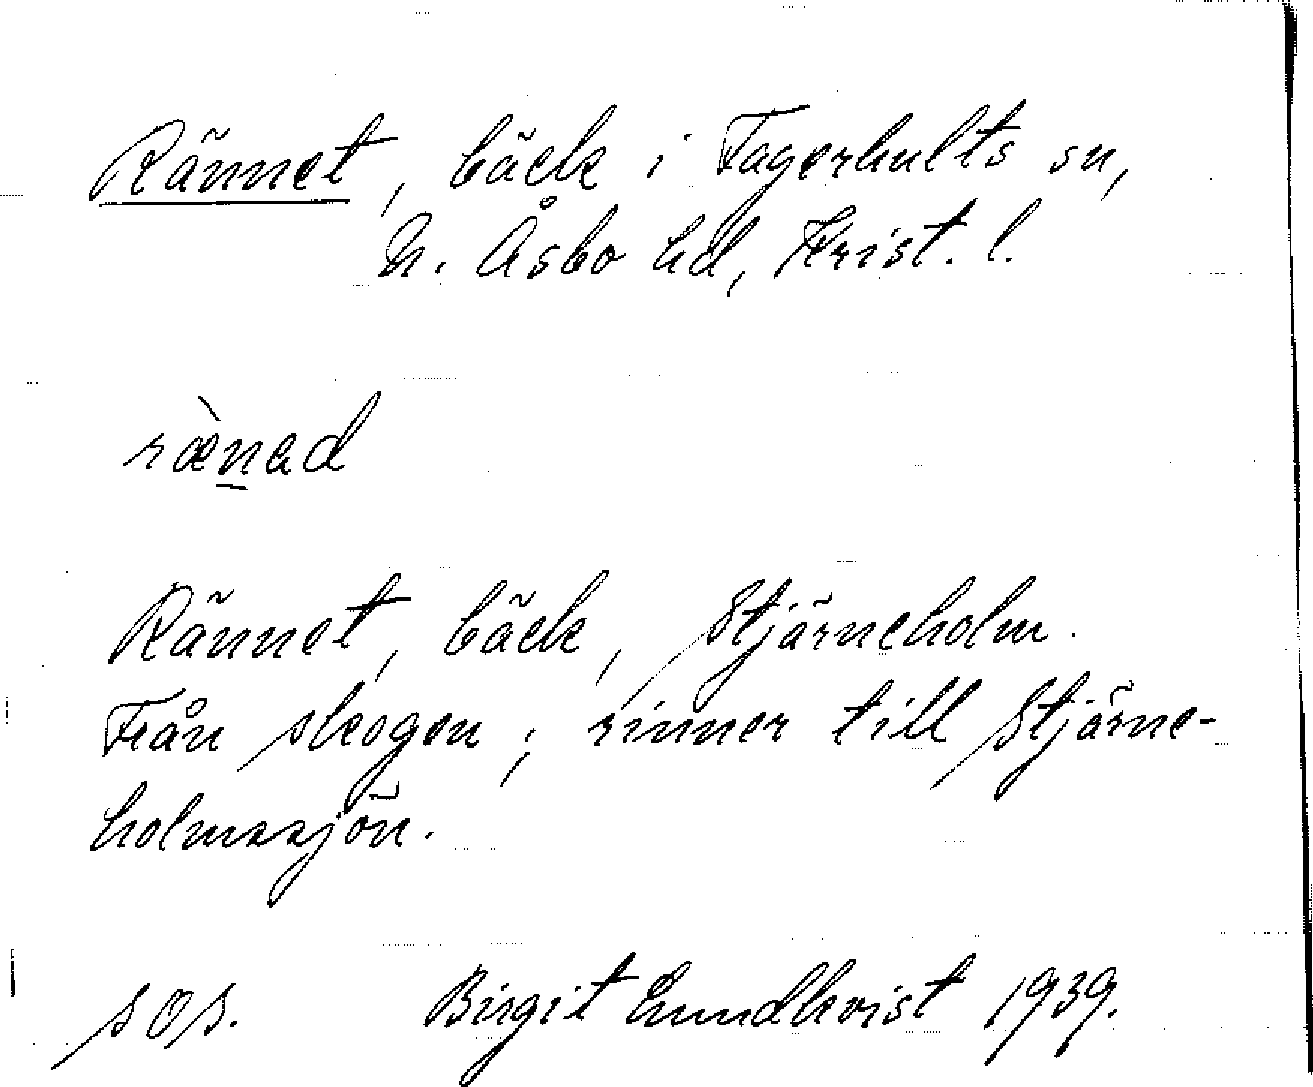 Rännet, bäck i Fagerhults sn,
N. Åsbo hd, Krist. l.
ræ̀n̲ad
Rännet, bäck, Stjärneholm.
Från skogen; rinner till Stjärne-
holmssjön.
SOS. Birgit Lundkvist 1939.